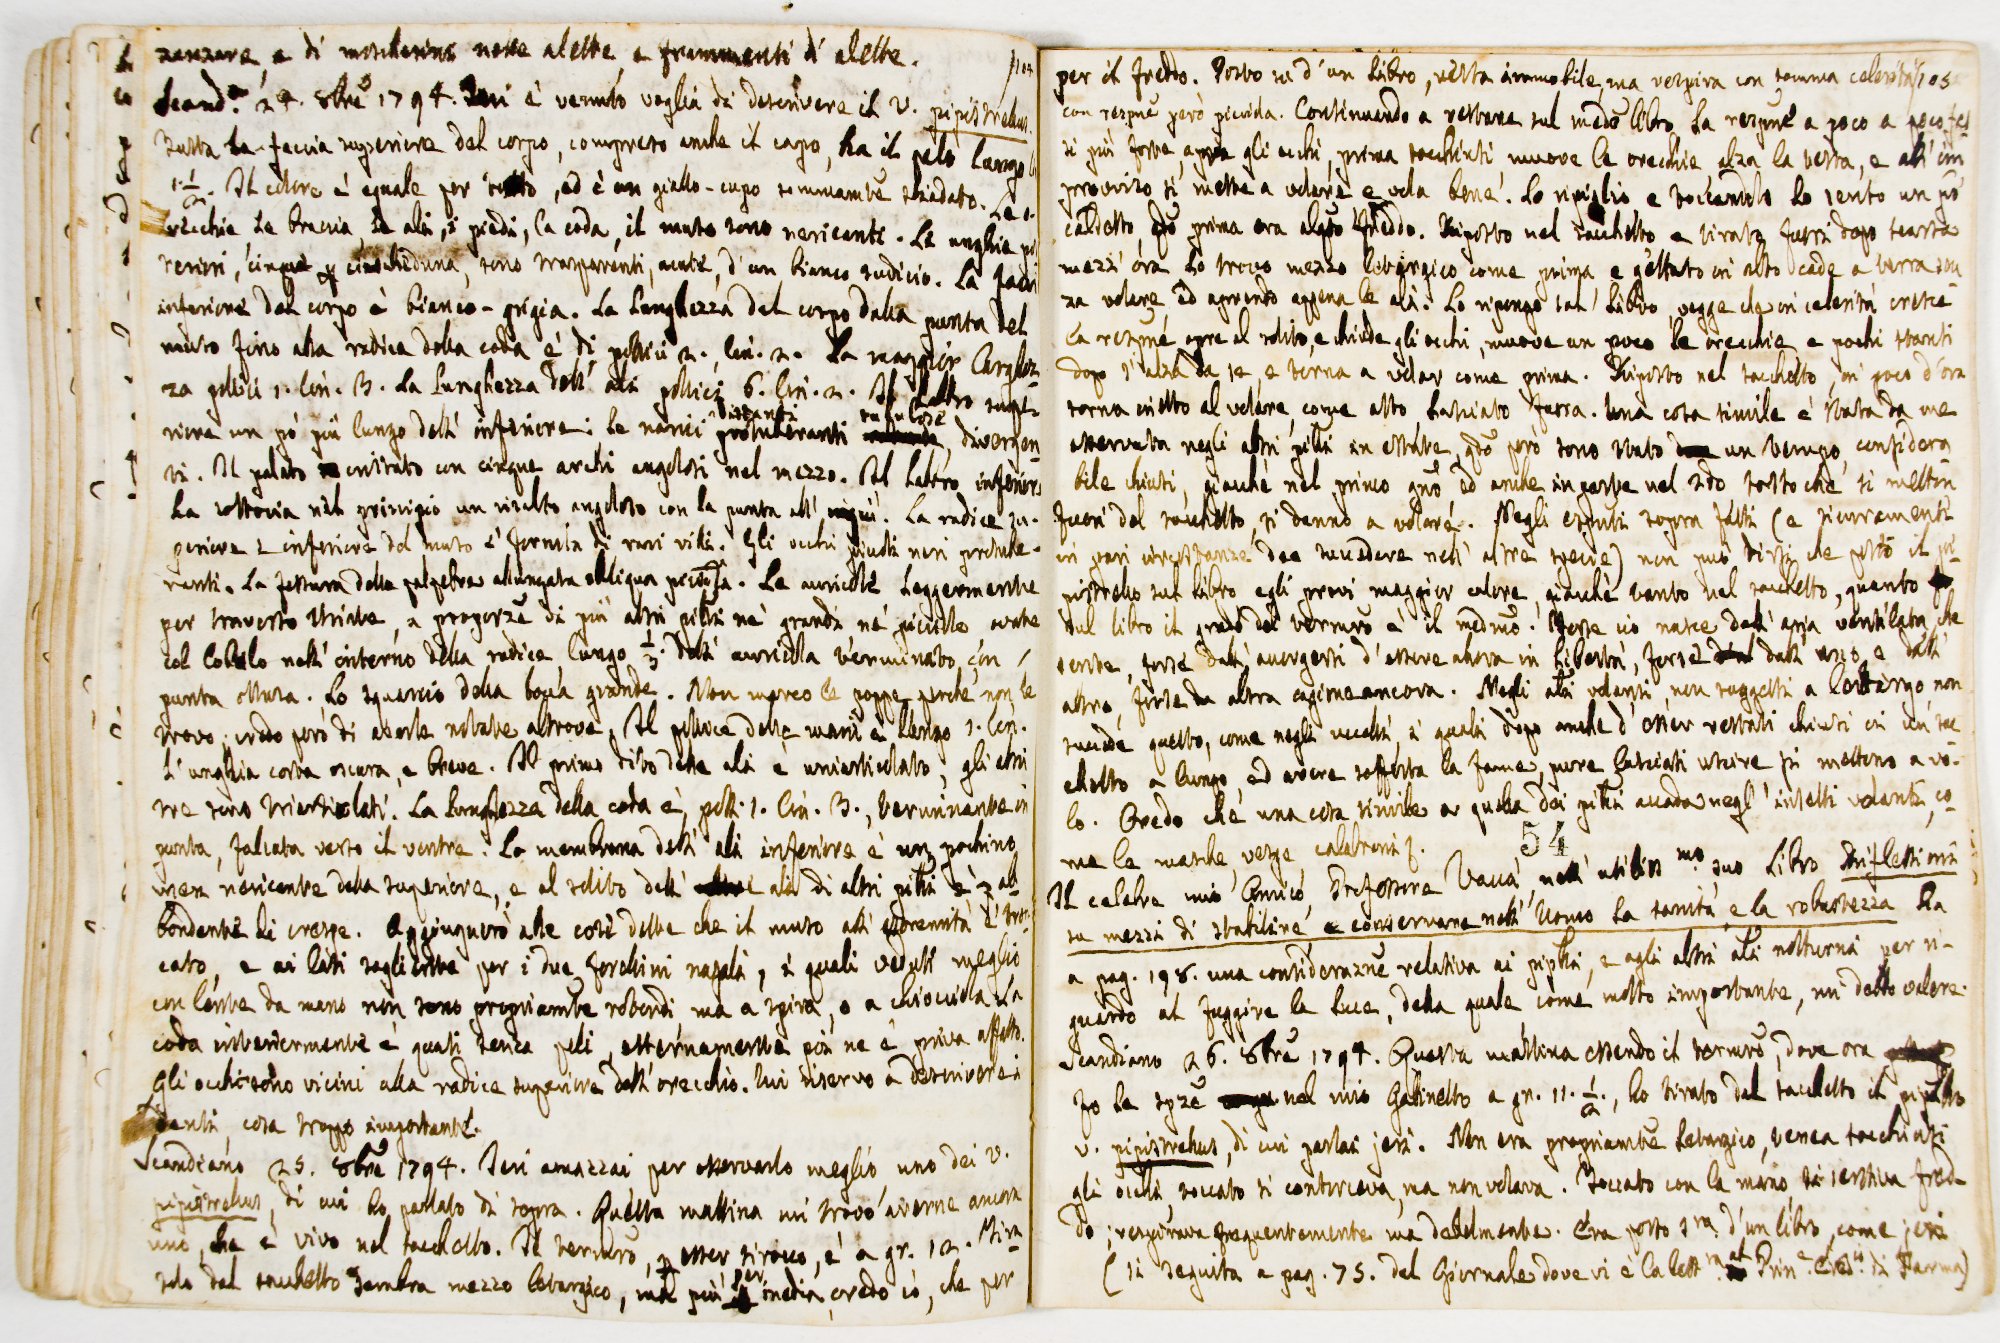 zanzare, e di moscherini nelle alette e frammenti di alette.
104
Scand.º 24. 8bre 1794. Jeri è venuto voglia di descrivere il V. pipistrellus.
Tutta la faccia superiore del corpo, compreso anche il capo, ha il pelo lungo
1 1/2. Il colore è eguale per tutto, ed è un giallo-cupo sommamte sbiadato. Le o-
recchie le braccia, le ali, i piedi, la coda, il muso sono nericanti. Le unghie po
steriori, cinque p ciascheduna, sono trasparenti, acute, d'un bianco sudicio. La faccia
inferiore del corpo è bianco-grigia. La lunghezza del corpo dalla punta del
muso fino alla radice della coda è di pollici 2. lin. 2. La maggior larghez
za pollici 1. lin. 3. La lunghezza dell' ali pollici 6. lin. 2. Il labbro supe-
riore un pò più lungo dell' inferiore. Le narici distanti protuberanti tubulose, divergen
ti. Il palato centrato con cinque archi angolosi nel mezzo. Il labbro inferiore
ha tuttavia nel principio un risalto angoloso con la punta all' ingiù. La radice su-
periore e inferiore del muso è fornita di rari villi. Gli occhi piccoli neri protube-
ranti. La fessura delle palpebre allungata obliqua piccola. Le auricole leggermente
per traverso striate, a proporze di più altri pilli nè grandi nè piccole ovate
col lobulo nell' interno della radice lungo 1/3 dell' auricola terminato con
punta ottusa. Lo squarcio della bocca grande. Non marco le poppe perchè non le
trovo, credo però di averle notate altrove. Il pollice delle mani è lungo 1. lin.
L'unghia corta oscura, e breve. Il primo dito delle ali e uniarticolato, gli altri
tre sono triarticolati. La lunghezza della coda è, poll. 1. lin. 3., terminante in
punta, falcata verso il ventre. La membrana dell' ali inferiore è un pochino
men nericante della superiore, e al solito dell' ali di altri pilli è ab
bondante di crespe. Aggiugnerò alle cose dette che il muso all' estremità è tron
cato, e ai lati sagliente per i due forellini nasali, i quali veduti meglio
con lente da mano non sono propriamte rotondi ma a spira, o a chiocciola. La
coda interiormente è quasi senza peli, esternamente poi ne è priva affatto.
Gli occhi sono vicini alla radice superiore dell' orecchio. Mi riservo a descrivere i
denti, cosa troppo importante.
Scandiano 25. 8bre 1794. Jeri amazzai per osservarlo meglio uno dei V.
pipistrellus, di cui ho parlato di sopra. Questa mattina mi trovo averne ancora
uno, che è vivo nel sacchetto. Il termrò, p esser sirocco, è a gr. 12. Tira
tolo dal sacchetto sembra mezzo letargico, ma più per inedia, credo io, che per
105
per il freddo. Posto su d'un libro, resta immobile, ma respira con somma celerità
con respne però picciola. Continuando a restare sul medo libro la respne a poco a poco fas
si più forte, apre gli occhi, prima socchiusi, muove le orecchie alza la testa, e all' im
provviso si mette a volare e vola bene. Lo ripiglio e toccandolo lo sento un pò
caldetto, qdo prima era alqto freddo. Riposto nel sacchetto e tirato fuori dopo scarsa
mezz' ora lo trovo mezzo letargico come prima e gettato in alto cade a terra sen
za volare, ed aprendo appena le ali. Lo ripongo sul libro veggo che in celerità cresce
la respne apre al solito, e chiude gli occhi, muove un poco le orecchie e pochi stanti
dopo s'alza da se, e torna a volar come prima. Riposto nel sacchetto, in poco d'ora
torna inetto al volare, come allo lasciato fuora. Una cosa simile è stata da me
osservata negli altri pilli in estate, qdo però sono stati un tempo considera
bile chiusi, giacchè nel primo gno ed anche in parte nel 2do tosto che si metton
fuori del sacchetto, si danno a volare. Negli esposti sopra fatti (e sicuramente
in pari circostanze dee succedere nell' altre specie) non può dirsi che posto il pi-
pistrello sul libro egli provi maggior calore, giacchè tanto nel sacchetto, quanto
sul libro il grado del termrò è il medmo. Forse ciò nasce dall' aria ventilata che
sente, forse dall' accorgersi d'essere allora in libertà, forse dall' uno, e dall'
altro, forse da altra cagione ancora. Negli altri volanti, non soggetti a letargo non
succede questo, come negli uccelli, i quali dopo anche d' esser restati chiusi in un sac
chetto a lungo, ed avere sofferta la fame, pure lasciati uscire si mettono a vo-
lo. Credo che una cosa simile a quella dei pilli accada negl' insetti volanti, co-
me le mosche, vespe, calabroni &.
54
Il celebre mio Amico Professore Vaccà, nell' utiliss.mo suo Libro Riflessioni
su mezzi di stabilire e conservare nell' Uomo la sanità, e la robustezza ha
a pag. 198. una considerazne relativa ai piplli, e agli altri ali notturni per ri-
guardo al fuggire la luce, della quale come molto importante, mi debbo valere.
Scandiano 26. 8bre 1794. Questa mattina essendo il termrò, dove ora
fo le spze nel mio Gabinetto a gr. 11. 1/2., ho tirato dal sacchetto il pipllo
V. pipistrellus, di cui parlai jeri. Non era propriamte letargico, tenea socchiusi
gli occhi, toccato si contorceva, ma non volava. Toccato con la mano, si sentiva fred
do; respirava frequentemente ma debolmente. Era posto sra d'un libro, come jeri
(si seguita a pag. 75. del Giornale dove vi è la lett.ra al Prin.e Ered.io di Parma)